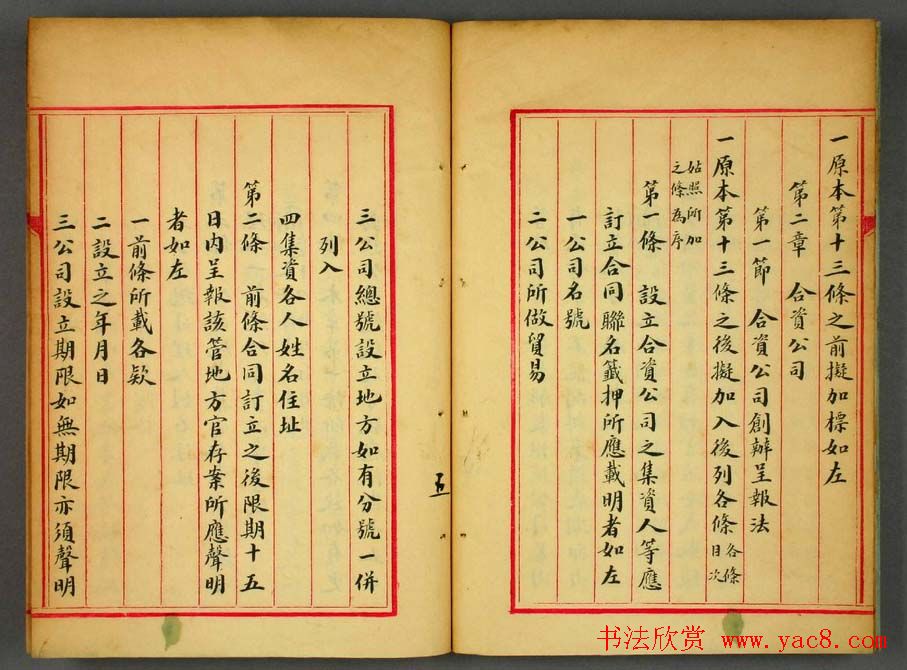 一原本第十三條之前擬加標如左
第二章　合資公司
第一節　合資公司創辦呈報法
一原本第十三條之後擬加入後列各條各條目次
姑照所加之條為序
第一條　設立合資公司之集資人等應
訂立合同聯名籤押所應載明者如左
一公司名號
二公司所做貿易
五
三公司總號設立地方如有分號一併
列入
四集資各人姓名住址
第二條　前條合同訂立之後限期十五
日内呈報該管地方官存案所應聲明
者如左
一前條所載各欵
二設立之年月日
三公司設立期限如無期限亦須聲明
书法欣赏 www.yac8.com